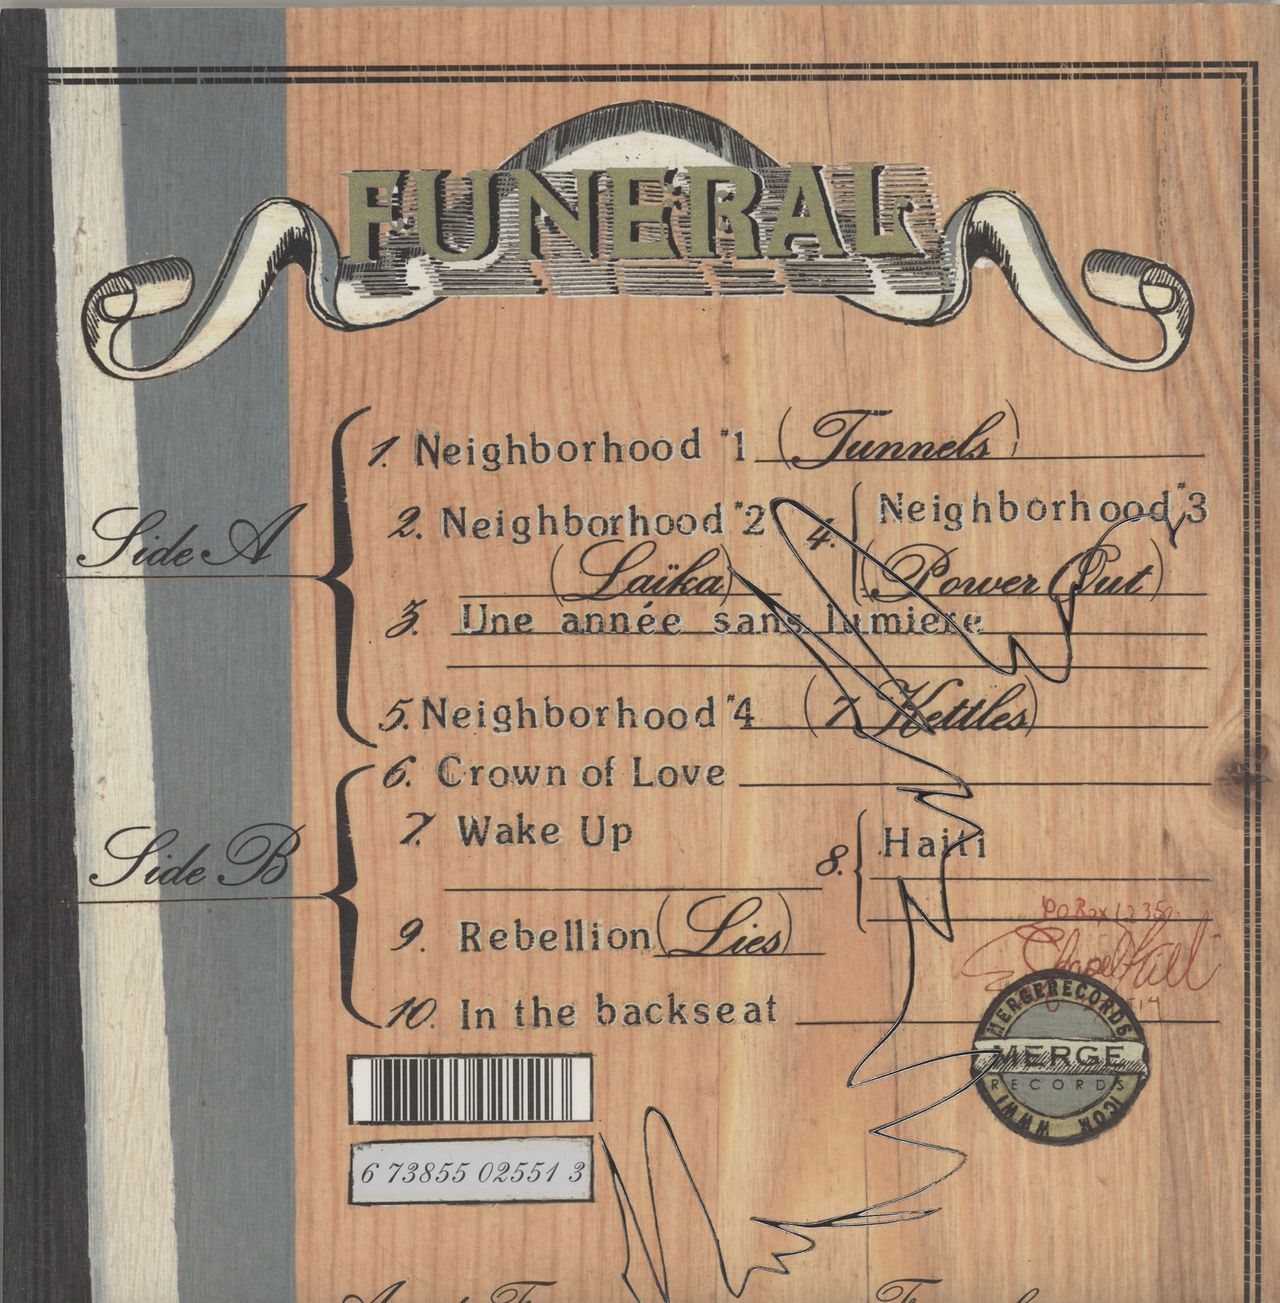 FUNERAL
Side A
1. Neighborhood #1 (Tunnels)
2. Neighborhood #2
(Laïka)
3. Une année sans lumiere
4. Neighborhood #3
(Power Out)
5. Neighborhood #4 (7 Kettles)
Side B
6. Crown of Love
7. Wake Up
8. Haiti
9. Rebellion (Lies)
10. In the backseat
PO Box 1235
Chapel Hill
MERGERECORDS
MERGE
RECORDS
WWW
.COM
6 73855 02551 3